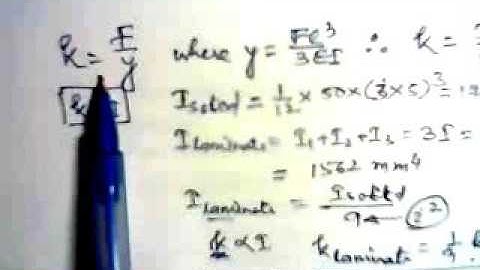 k = F/y where y = Fl³/3EI ∴ k =
I solid = 1/12 × 50 × (3 × 5)³ =
I laminate = I₁ + I₂ + I₃ = 3I =
= 1562 mm⁴
I laminate = I solid /
k ∝ I k laminate = 1/9